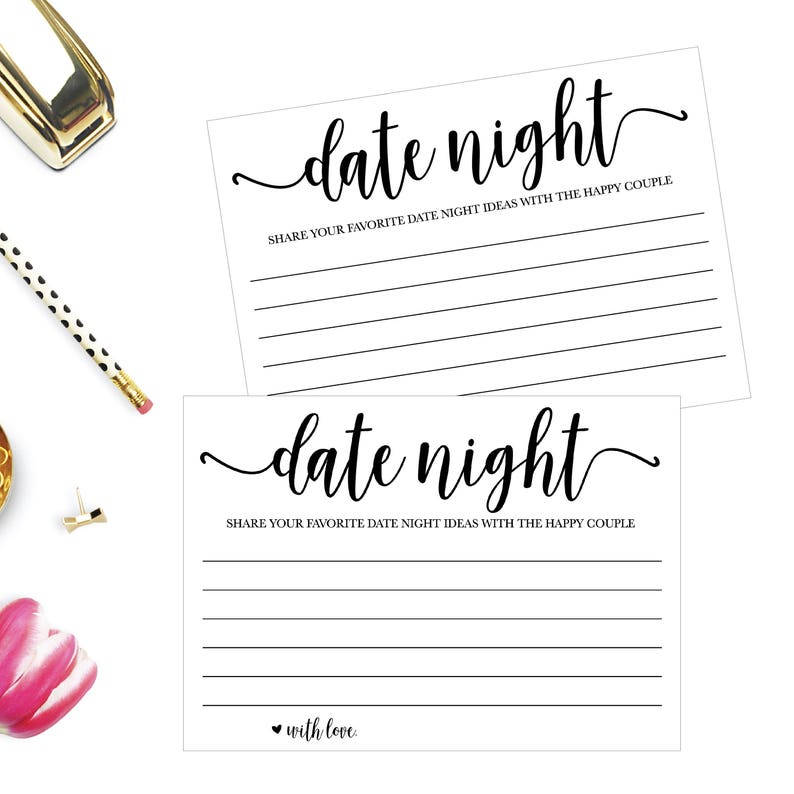 date night
SHARE YOUR FAVORITE DATE NIGHT IDEAS WITH THE HAPPY COUPLE
date night
SHARE YOUR FAVORITE DATE NIGHT IDEAS WITH THE HAPPY COUPLE
with love.